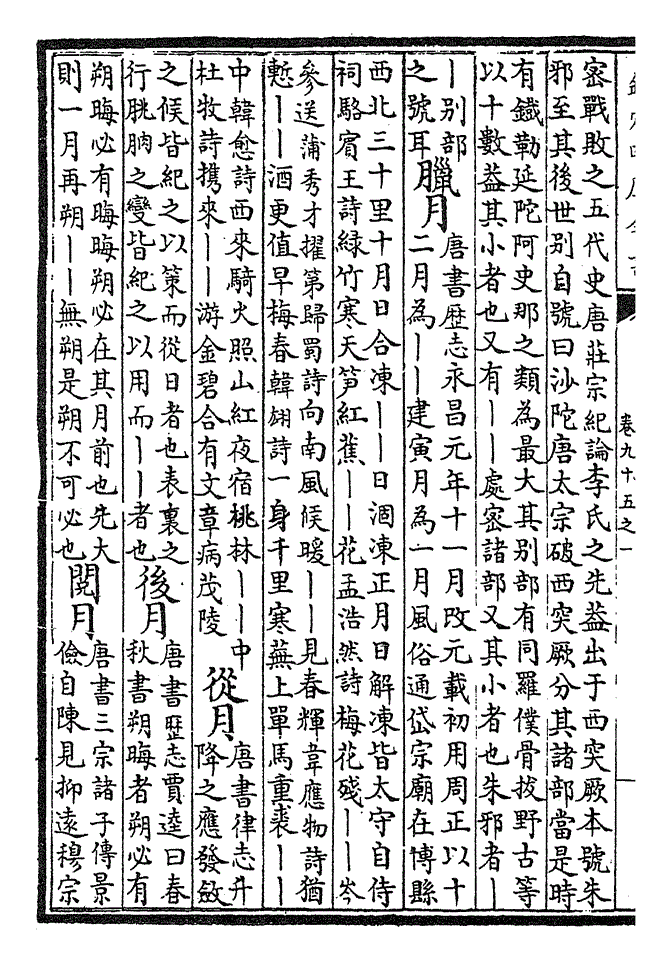 欽定四庫全書
卷九十五之一
密戰敗之五代史唐莊宗紀論李氏之先葢出于西突厥本號朱
邪至其後世别自號曰沙陀唐太宗破西突厥分其諸部當是時
有鐵勒延陀阿史那之類為最大其别部有同羅僕骨拔野古等
以十數葢其小者也又有丨丨處密諸部又其小者也朱邪者丨
丨别部
之號耳
臘月
唐書歴志永昌元年十一月改元載初用周正以十
二月為丨丨建寅月為一月風俗通岱宗廟在博縣
西北三十里十月日合凍丨丨日涸凍正月日解凍皆太守自侍
祠駱賓王詩緑竹寒天笋紅蕉丨丨花孟浩然詩梅花殘丨丨岑
參送蒲秀才擢第歸蜀詩向南風候暖丨丨見春輝韋應物詩猶
慙丨丨酒更值早梅春韓翃詩一身千里寒蕪上單馬重裘丨丨
中韓愈詩西來騎火照山紅夜宿桃林丨丨中
杜牧詩携來丨丨游金碧合有文章病茂陵
從月
唐書律志升
降之應發斂
之候皆紀之以策而從日者也表裏之
行朓朒之變皆紀之以用而丨丨者也
後月
唐書歴志賈逵曰春
秋書朔晦者朔必有
朔晦必有晦晦朔必在其月前也先大
則一月再朔丨丨無朔是朔不可必也
閱月
唐書三宗諸子傳景
儉自陳見抑遠穆宗